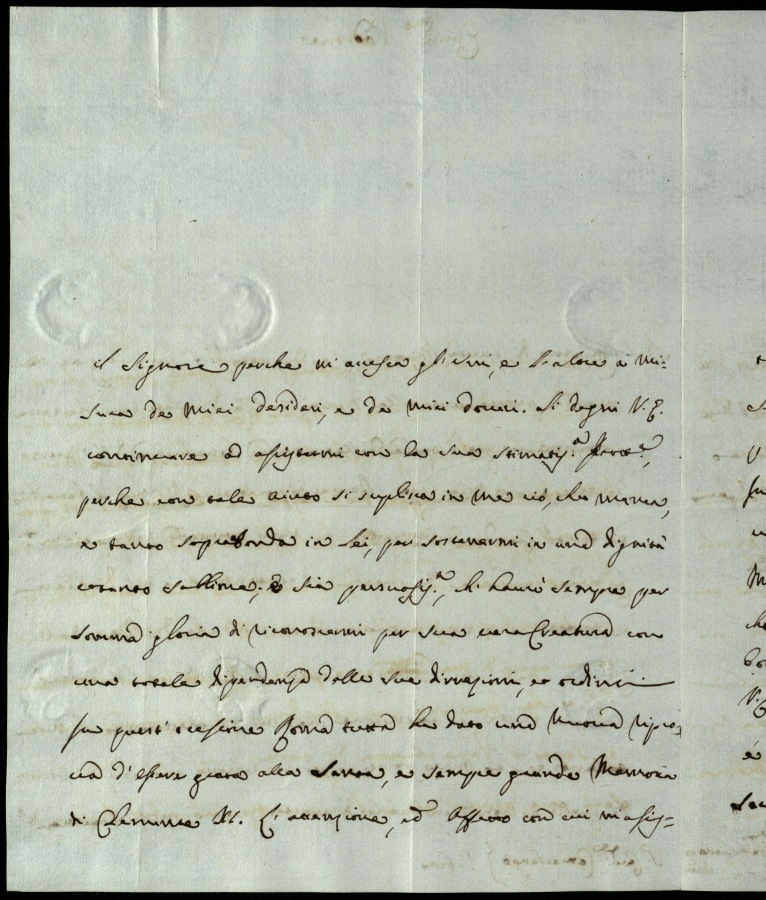 il Signore perche mi accresca gli anni, e l'altre à mi=
sura de miei desideri, e de miei doveri. Si degni V. E.
continuare ad assistermi con la sua stimatis.ª
perche con tale aiuto si suplisca in me ciò, che manca,
e tanto soprabonda in Lei, per sostenermi in una dignità
cotanto sublime; E sia persuasis.ª, ch'havrò sempre per
somma gloria di riconoscermi per sua vera Creatura con
una totale dipendenza dalle sue direzioni, et ordini
In quest'occasione Roma tutta ha dato una nuova ripro=
va d'essere grata alla Santa, e sempre grande Memoria
di Clemente XI. L'attenzione, ed Affetto con cui m'assis=